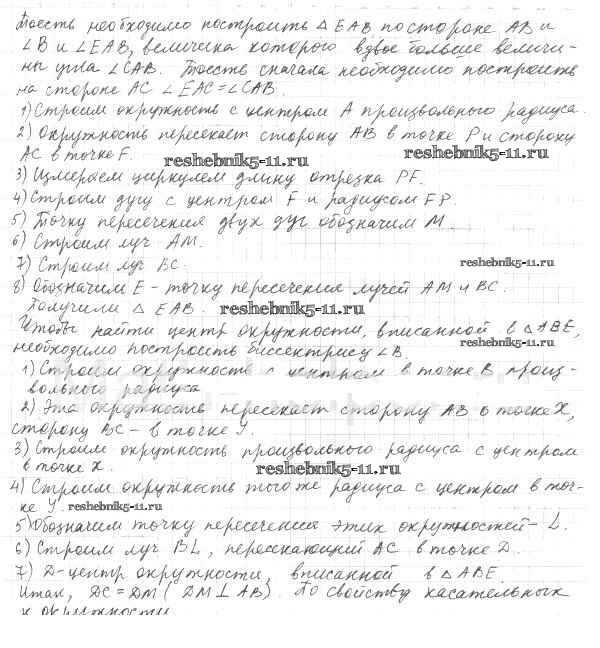 Тоесть необходимо построить △ EAB по стороне AB и
∠B и ∠EAB, величина которого вдвое больше величи-
ны угла ∠CAB. Тоесть сначала необходимо построить
на стороне AC ∠EAC = ∠CAB.
1) Строим окружность с центром A произвольного радиуса.
2) Окружность пересекает сторону AB в точке P и сторону
AC в точке F.
reshebnik5-11.ru
reshebnik5-11.ru
3) Измеряем циркулем длину отрезка PF.
4) Строим дугу с центром F и радиусом FP.
5) Точку пересечения двух дуг обозначим M.
6) Строим луч AM.
7) Строим луч BC.
reshebnik5-11.ru
8) Обозначим E - точку пересечения лучей AM и BC.
Получили △ EAB.
reshebnik5-11.ru
Чтобы найти центр окружности, вписанной в △ABE,
необходимо построить биссектрису ∠B.
reshebnik5-11.ru
1) Строим окружность с центром в точке B произ-
вольного радиуса
2) Эта окружность пересекает сторону AB в точке X,
сторону BC - в точке Y.
3) Строим окружность произвольного радиуса с центром
в точке X.
reshebnik5-11.ru
4) Строим окружность того же радиуса с центром в точ-
ке Y.
reshebnik5-11.ru
5) Обозначим точку пересечения этих окружностей - L.
6) Строим луч BL, пересекающий AC в точке D.
7) D-центр окружности, вписанной в △ABE.
Итак, DC = DM (DM ⊥ AB). По свойству касательных
к окружности